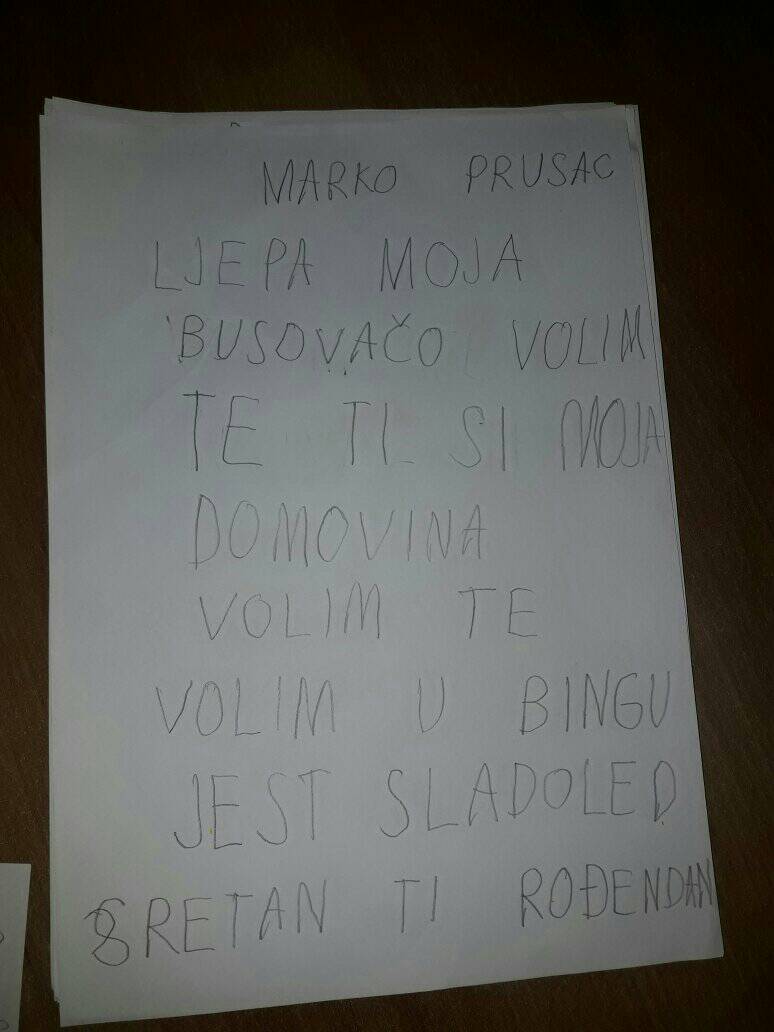 MARKO PRUSAC
LJEPA MOJA
BUSOVAČO VOLIM
TE TI SI MOJA
DOMOVINA
VOLIM TE
VOLIM U BINGU
JEST SLADOLED
SRETAN TI ROĐENDAN